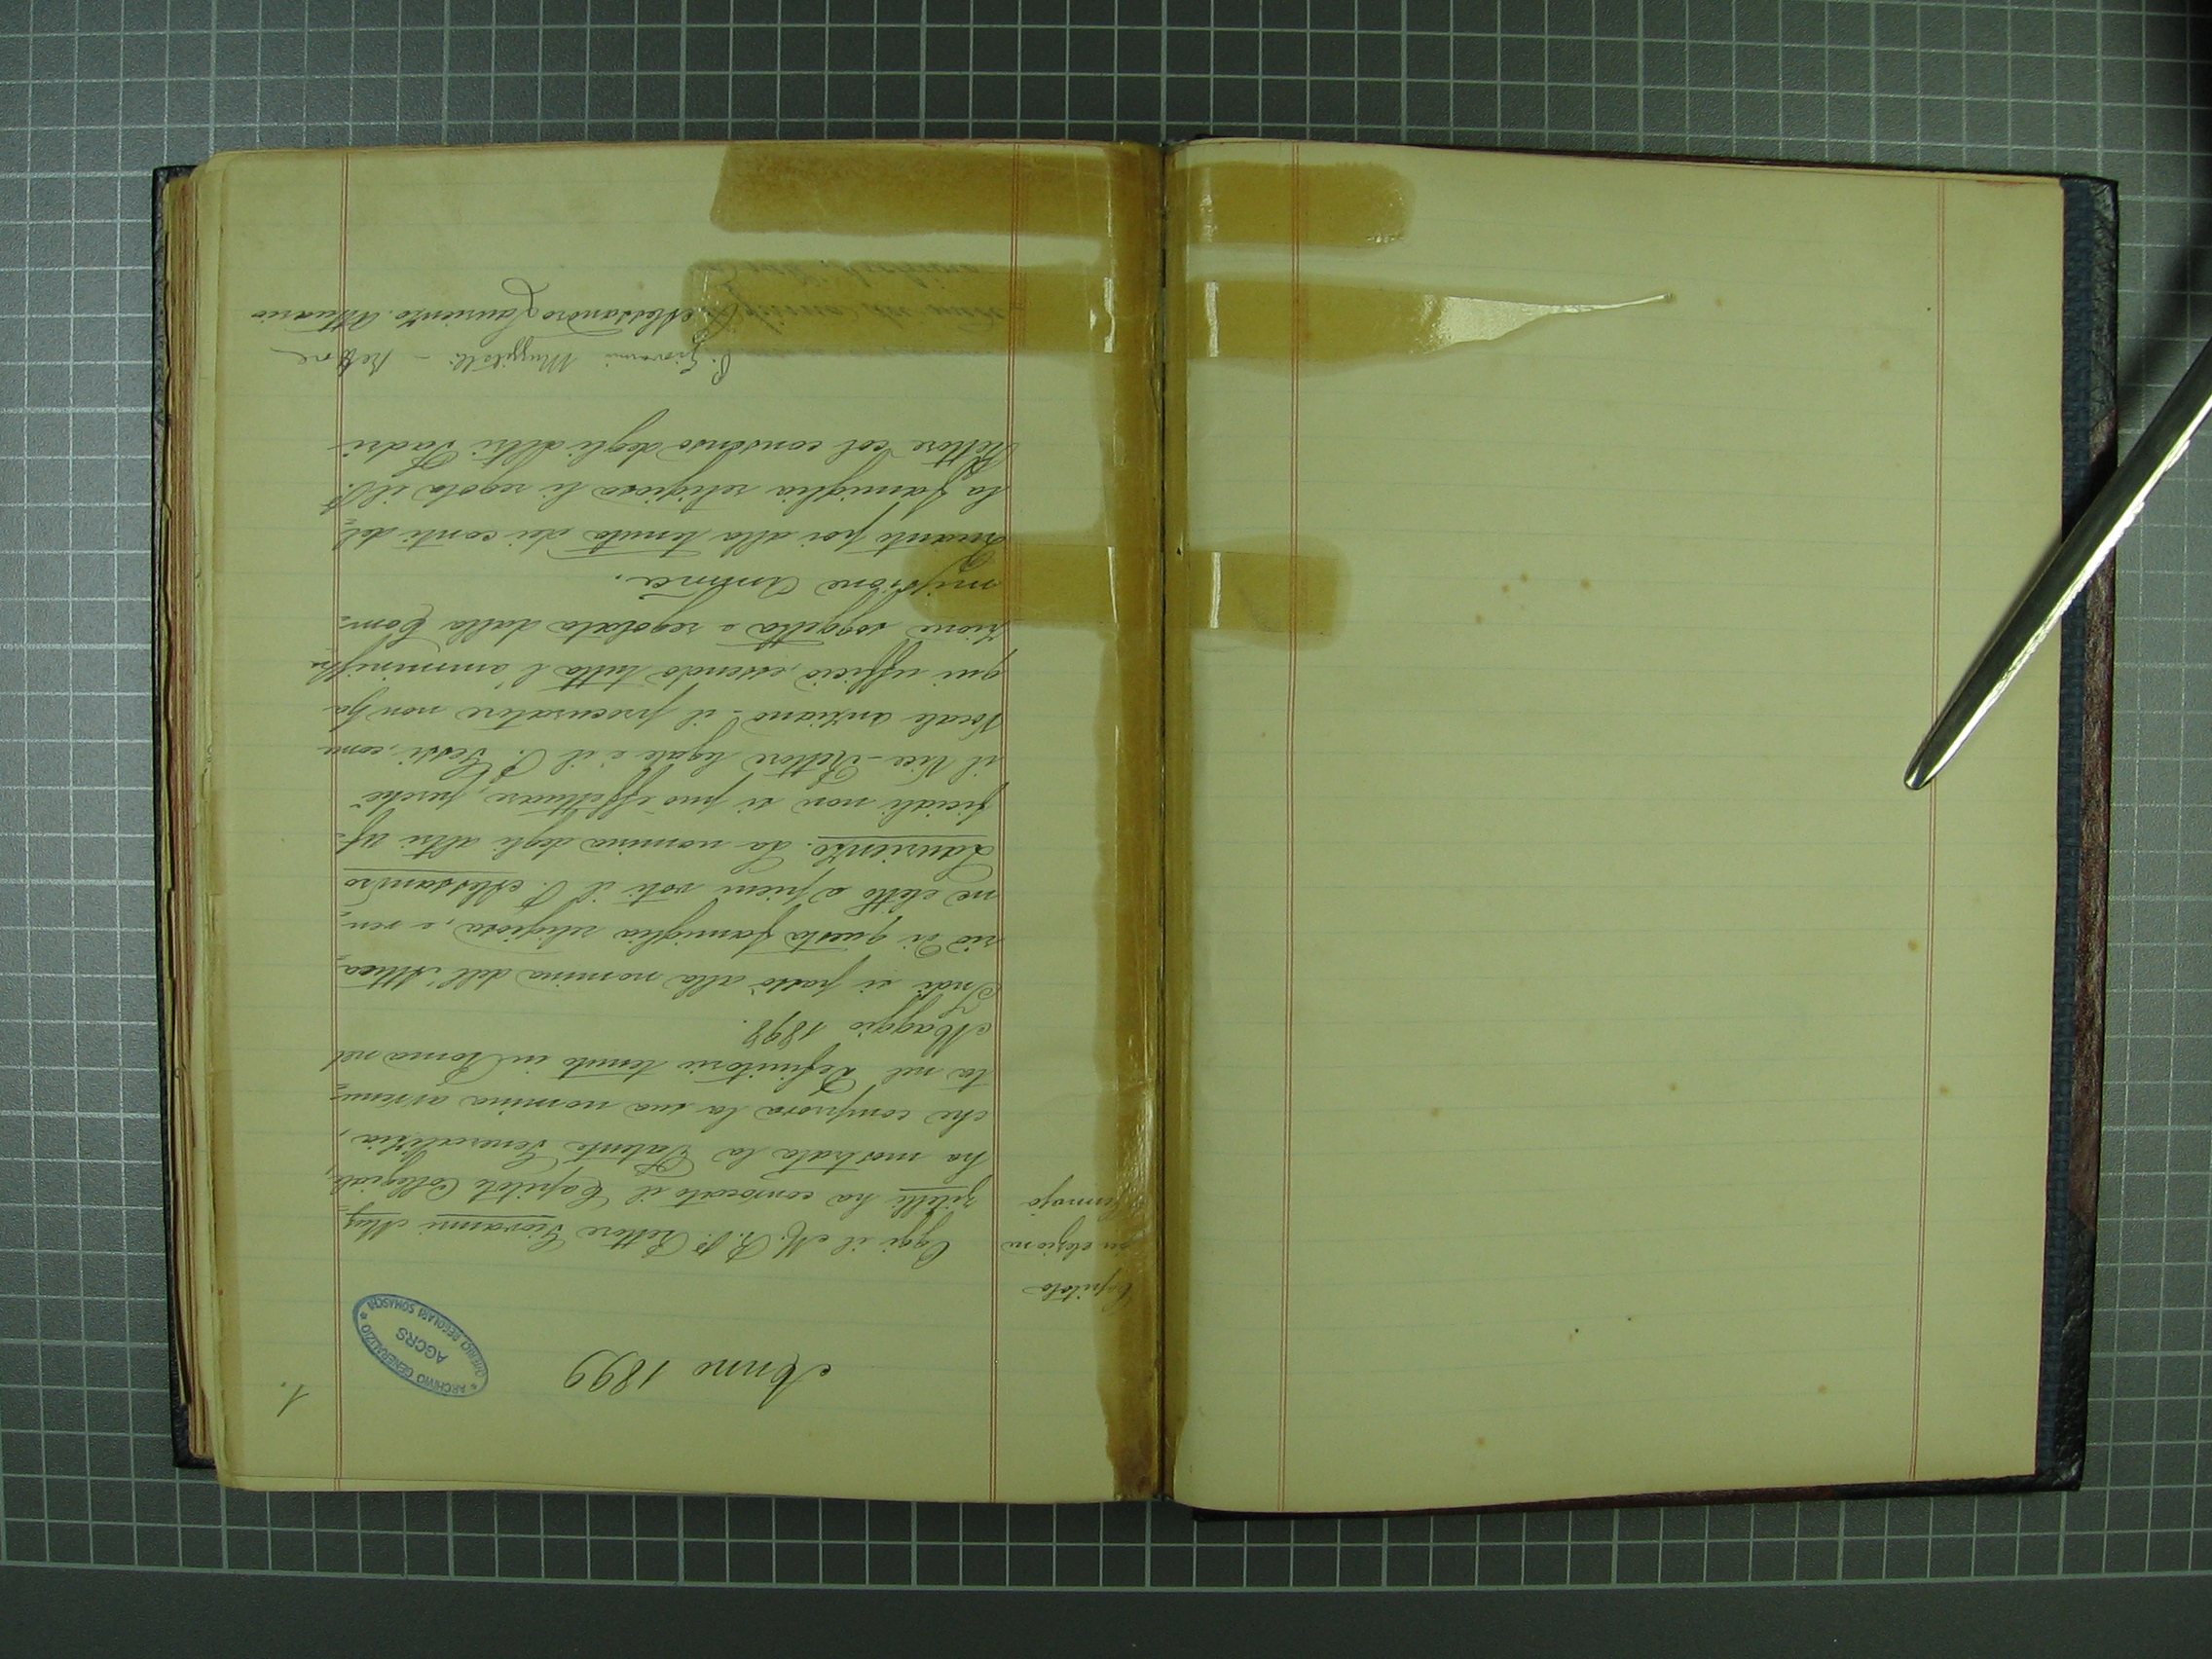 1.
Anno 1899
ARCHIVIO GENERALIZIO
AGCRS
CHIERICI REGOLARI SOMASCHI
Capitolo
per elezione
Oggi il M. R. P. Rettore Giovanni Muz=
zitelli ha convocato il Capitolo Collegiale,
ha mostrata la Patente Generalizia,
che comprova la sua nomina avvenu=
ta nel Definitorio tenuto in Roma nel
Maggio 1898.
Indi si passò alla nomina dell'Attua=
rio di questa famiglia religiosa, e ven=
ne eletto a pieni voti il P. Alessandro
Laurienzo. La nomina degli altri uf=
ficiali non si può effettuare, perchè
il Vice-Rettore legale è il P. Gessi, come
Vocale anziano - il procuratore non ha
qui ufficio, essendo tutta l'amministra
zione soggetta e regolata dalla Com=
missione
Quanto poi alla tenuta dei conti del=
la famiglia religiosa li regola il P.
Rettore col consenso degli altri Padri
P. Giovanni Muzzitelli - Rettore
P. Alessandro Laurienzo. Attuario